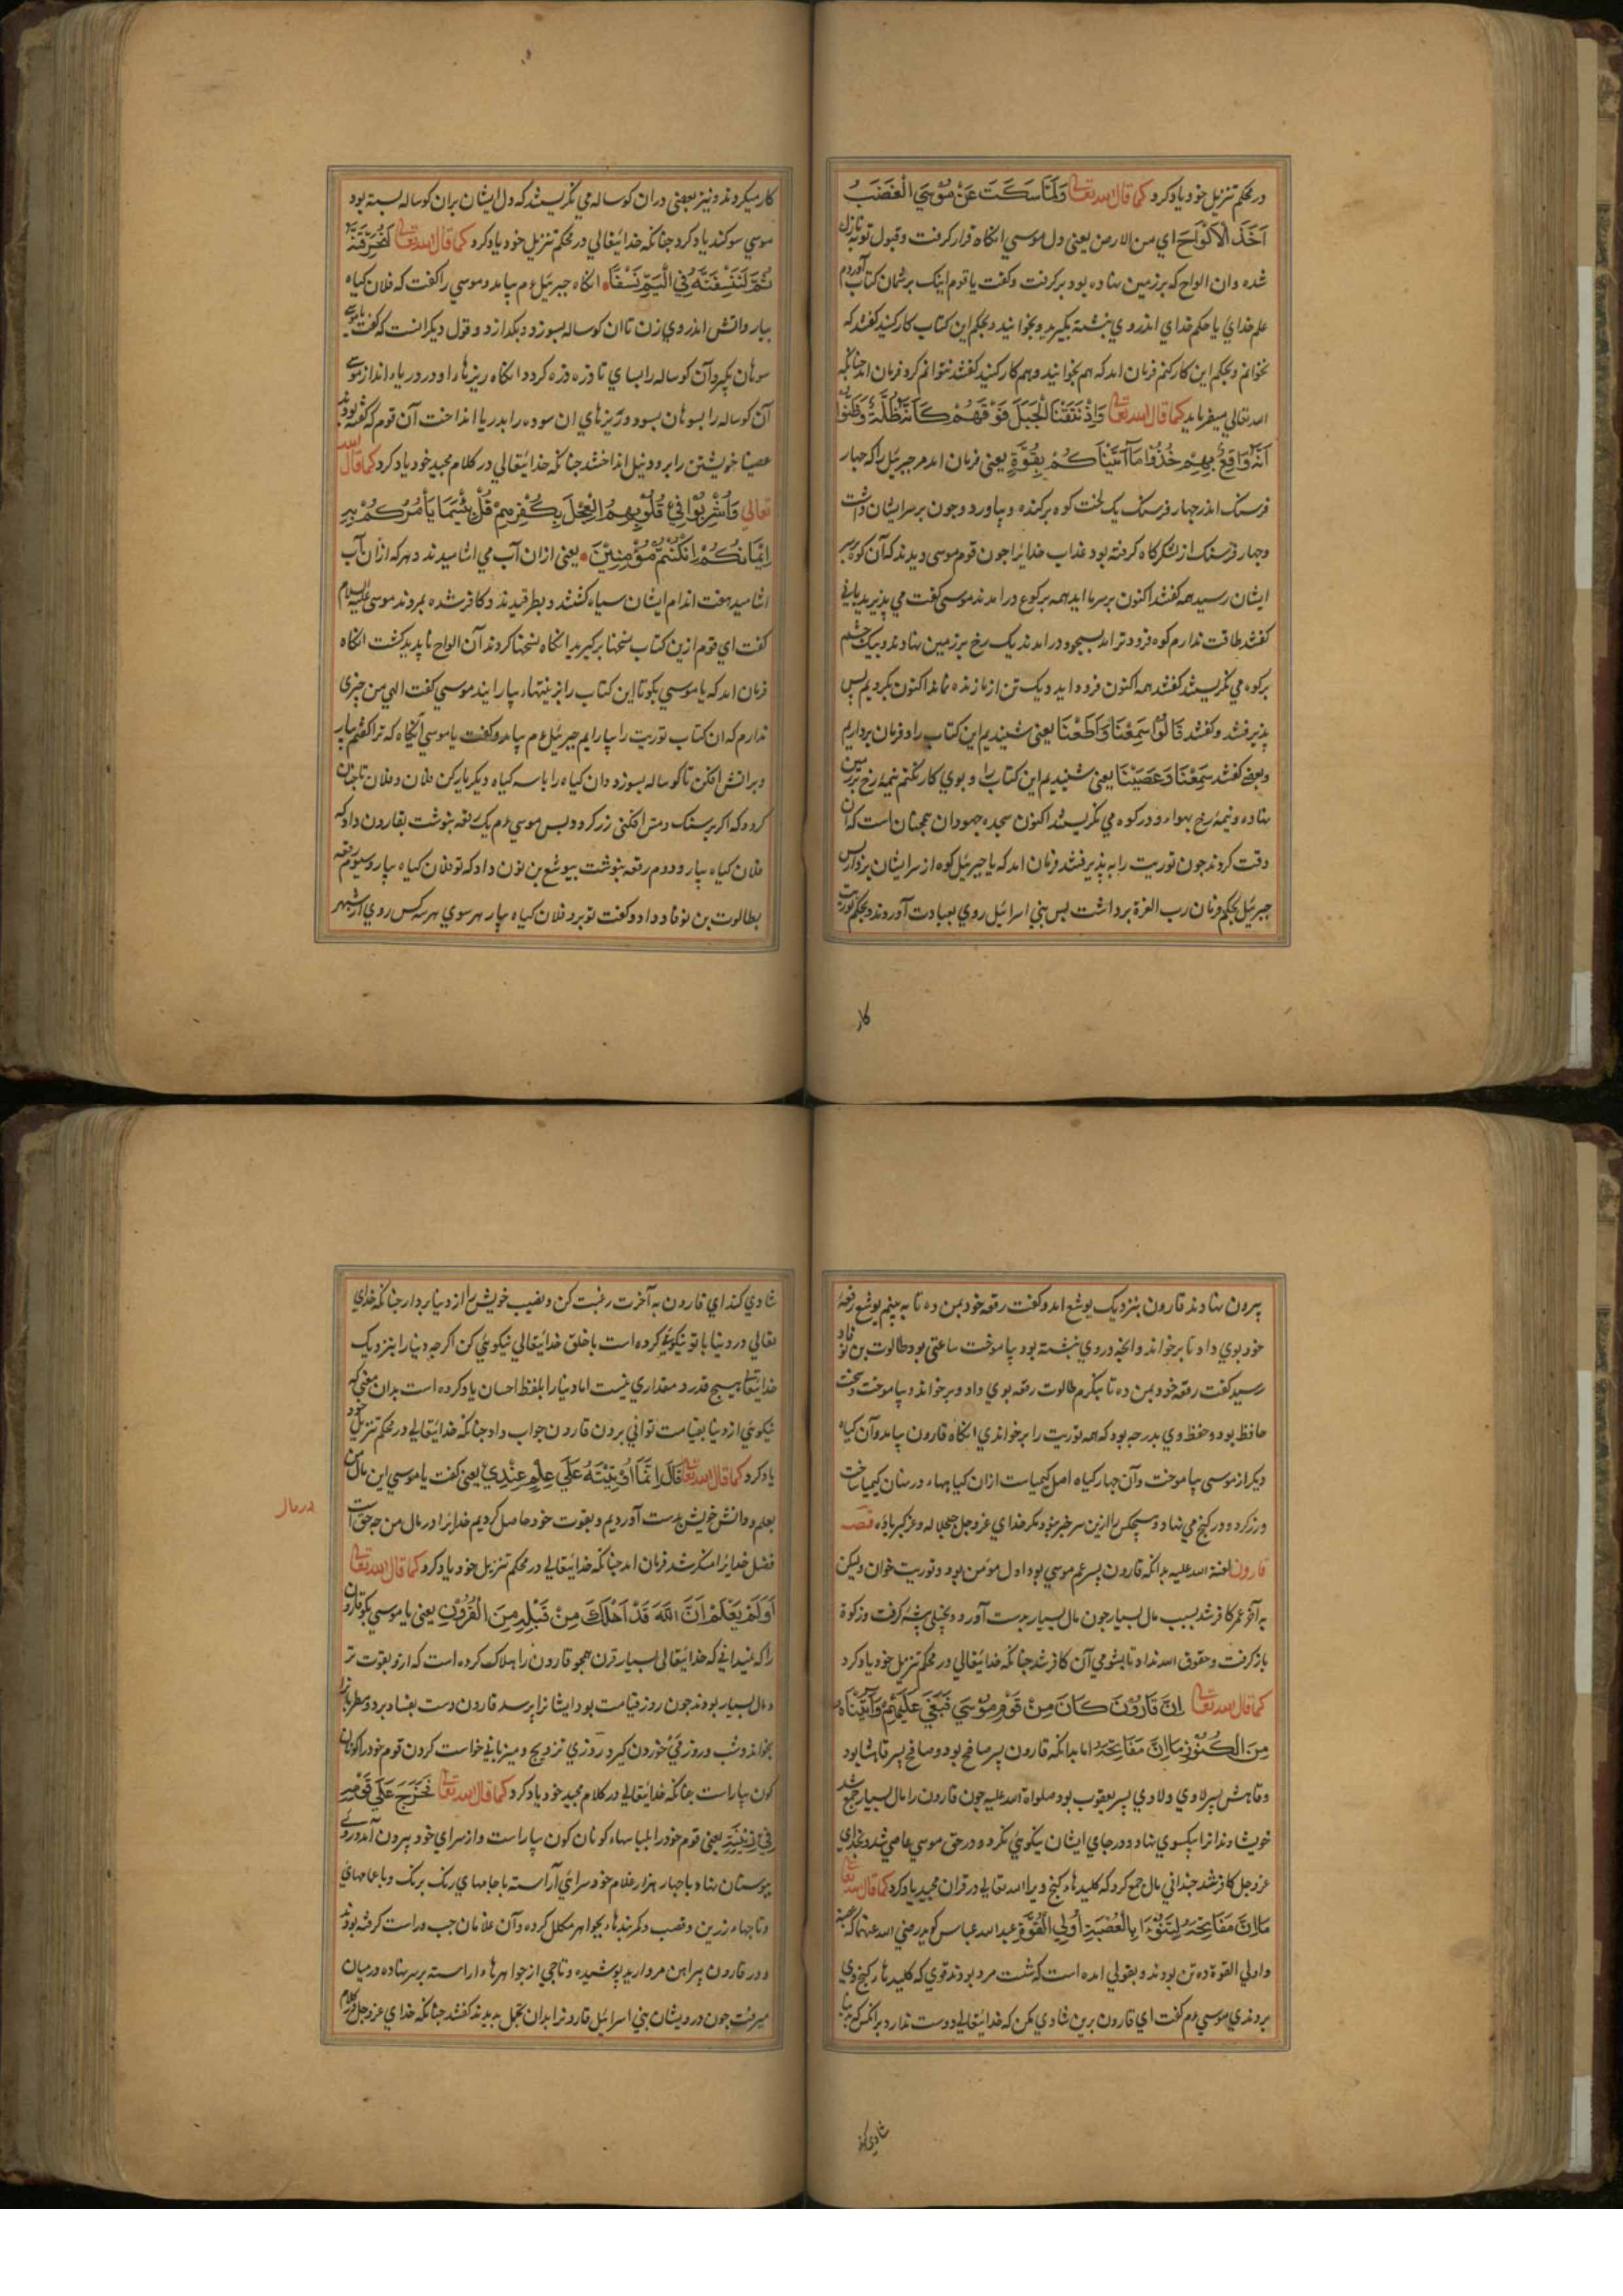 در محکم تنزیل خود یاد کرد کما قال الله تعالی وَلَمَّا سَكَتَ عَنْ مُوْسَي الْغَضَبُ
اَخَذَ الْاَلْوَاحَ اي من الارض یعنی دل موسی انکاه قرار کرفت و قبول توبه نازل
شده و ان الواح که بر زمین نهاده بود بر کرفت و کفت یا قوم اینک بر شمان کتاب آوردم
علم خدای یا حکم خدای اندروی نبشته بکیرید و بخوانید و بحکم این کتاب کار کنید کفتند که
بخوانم و بحکم این کار کنم فرمان امد که هم بخوانید و هم کار کنید کفتند نتوانم کرد فرمان امد جنانکه
الله تعالي میفرماید کما قال الله تعالی وَاِذْ نَتَقْنَا الْجَبَلَ فَوْقَهُمْ كَاَنَّهُ ظُلَّةٌ وَظَنُّوا
اَنَّهُ وَاقِعٌ بِهِمْ خُذُوا مَا آتَيْنَاكُمْ بِقُوَّةٍ یعنی فرمان امد مر جبرئیل را که جهار
فرسنک اندر جهار فرسنک یک لخت کوه بر کنده و بیاورد و جون بر سر ایشان داشت
وجهار فرسنک از لشکرکاه کرفته بود عذاب خدایرا جون قوم موسی دیدند که آن کوه بر سر
ایشان رسید همه کفتند اکنون بر سر ما اید همه برکوع در امدند موسی کفت می پذیرید یا نی
کفتند طاقت نداریم کوه فرودتر امد بسجود در امدند یک رخ بر زمین نهادند و بیک جشم
بر کوه می نکریستند کفتند همه اکنون فرود اید و یک تن از ما زنده نماند اکنون بکرویم پس
پذیرفتند و کفتند قَالُوا سَمِعْنَا وَاَطَعْنَا یعنی شنیدیم این کتاب را و فرمان برداریم
و بعضی کفتند سَمِعْنَا وَعَصَيْنَا یعنی شنیدیم این کتاب را و بوی کار نکنم نیمه رخ بر زمین
نهاده و نیمه رخ بهواء و در کوه می نکریستند اکنون سجده جهودان همجنان است که ان
وقت کردند جون توریت را به پذیرفتند فرمان امد که یا جبرئیل کوه از سر ایشان بردار پس
جبرئیل بحکم فرمان رب العزة برداشت بس بنی اسرائیل روی بعبادت آوردند و بحکم توریت
کار
کار میکردند و نیز بعضی دران کوساله می نکریستند که دل ایشان بران کوساله بسته بود
موسی سوکند یاد کرد جنانکه خدایتعالي در محکم تنزیل خود یاد کرد کما قال الله تعالی لَنُحَرِّقَنَّهُ
ثُمَّ لَنَنْسِفَنَّهُ فِي الْيَمِّ نَسْفًا انکاه جبرئیل عم بیامد و موسی را کفت که فلان کیاه
بیار و اتش اندروی زن تا ان کوساله بسوزد و بکدازد و قول دیکر انست که کفت یا موسی
سوهان بکیر و آن کوساله را بسای تا ذره ذره کردد انکاه ریزها را و در دریاء انداز موسی
آن کوساله را بسوهان بسود و ریزهای ان سوده را بدریا انداخت آن قوم که کفته بودند
عصینا خویشتن را برود نیل انداختند جنانکه خدایتعالي در کلام مجید خود یاد کرد کما قال الله
تعالي وَاُشْرِبُوْا فِي قُلُوْبِهِمُ الْعِجْلَ بِكُفْرِهِمْ قُلْ بِئْسَمَا يَأْمُرُكُمْ بِهِ
اِيْمَانُكُمْ اِنْ كُنْتُمْ مُؤْمِنِيْنَ یعنی ازان آب می اشامیدند و هر که ازان آب
اشامید هفت اندام ایشان سیاه کشتند و بطرقیدند و کافر شده بمردند موسی علیه السلام
کفت ای قوم ازین کتاب نسختها بر کیرید انکاه نسختها کردند آن الواح ناپدید کشت انکاه
فرمان امد که یا موسی بکو تا این کتاب را بزینتها بیارایند موسی کفت الهی من چیزی
ندارم که ان کتاب توریت را بیارایم جبرئیل عم بیامد و کفت یا موسی آنکاه که ترا کفتم بیار
و بر اتش افکن تا کوساله بسوزد و ان کیاه را با سه کیاه دیکر یار کن فلان و فلان تا جنان
کردد که اکر بر سنک و مس افکنی زر کردد پس موسی عم یک رقعه بنوشت بقارون داد که
فلان کیاه بیار و دوم رقعه بنوشت بیوشع بن نون داد که تو فلان کیاه بیار و سیوم رقعه
بطالوت بن نوناد داد و کفت تو برو فلان کیاه بیار هر سوی هر سه کس روی از شهر
بیرون نهادند قارون بنزدیک یوشع امد و کفت رقعه خود بمن ده تا به بینم یوشع رقعه
خود بوی داد تا برخواند و انجه دروی نبشته بود بیاموخت ساعتی بود طالوت بن نوناد
رسید کفت رقعه خود بمن ده تا بنکرم طالوت رقعه بوی داد و برخواند و بیاموخت و سخت
حافظ بود و حفظ وی بدرجه بود که همه توریت را برخواندی انکاه قارون بیامد و آن کیاه
دیکر از موسی بیاموخت و آن جهار کیاه اصل کیمیاست ازان کیاهها در نهان کیمیا ساخت
و زر کرد و در کنج می نهاد و هیچکس را ازین سر خبر نبود مکر خدای عز و جل جلاله و عز کبریاؤه قصه
قارون لعنة الله علیه بدانکه قارون پسر عم موسی بود اول مؤمن بود و توریت خوان ولیکن
به آخر عمر کافر شد بسبب مال بسیار جون مال بسیار بدست آورد و بخیلی پیشه کرفت و زکوة
باز کرفت و حقوق الله نداد تا بشومی آن کافر شد جنانکه خدایتعالي در محکم تنزیل خود یاد کرد
کما قال الله تعالی اِنَّ قَارُوْنَ كَانَ مِنْ قَوْمِ مُوْسَي فَبَغَي عَلَيْهِمْ وَآتَيْنَاهُ
مِنَ الْكُنُوْزِ مَا اِنَّ مَفَاتِحَهُ اما بدانکه قارون پسر صافح بود و صافح پسر قاهثا بود
و قاهش پسر لاوی و لاوی پسر یعقوب بود صلواة الله علیه جون قارون را مال بسیار جمع شد
خویشاوندانرا بیکسوی نهاد و در جای ایشان نیکوئی نکرد و در حق موسی عاصی شد و بخدای
عز وجل کافر شد جندانی مال جمع کرد که کلیدهاء کنج ویرا الله تعالي در قران مجید یاد کرد کما قال الله تعالی
مَا اِنَّ مَفَاتِحَهُ لَتَنُوْءُ بِالْعُصْبَةِ اُولِي الْقُوَّةِ عبد الله عباس کوید رضی الله عنهما که عصبة
و اولي القوة ده تن بودند و بقولی امده است که شصت مرد بودند قوی که کلیدهاء کنج وی
بردندی موسی عم کفت ای قارون برین شادی مکن که خدایتعالي دوست ندارد بر انکس که بدنیا
شادی کند
شادی کند ای قارون به آخرت رغبت کن و نصیب خویش را از دنیا بردار جنانکه خدای
تعالي در دنیا با تو نیکوئی کرده است با خلق خدایتعالي نیکوئی کن اکرچه دنیا را بنزدیک
خدایتعالی هیچ قدر و مقداری نیست اما دنیا را بلفظ احسان یاد کرده است بدان معنی که
نیکوئی از دنیا بقیامت توانی بردن قارون جواب داد جنانکه خدایتعالي در محکم تنزیل خود
یاد کرد کما قال الله تعالی قَالَ اِنَّمَا اُوْتِيْتُهُ عَلَي عِلْمٍ عِنْدِيْ یعنی کفت یا موسی این مال من
بعلم و دانش خویش بدست آوردیم و بقوت خود حاصل کردیم خدایرا در مال من چه حق است
در مال
فضل خدایرا منکر شد فرمان امد جنانکه خدایتعالي در محکم تنزیل خود یاد کرد کما قال الله تعالی
اَوَلَمْ يَعْلَمْ اَنَّ اللّٰهَ قَدْ اَهْلَكَ مِنْ قَبْلِهِ مِنَ الْقُرُوْنِ یعنی یا موسی بکو قارون
را که نمیدانی که خدایتعالی بسیار قرن همجو قارون را هلاک کرده است که ازو بقوت تر
و مال بسیار بودند جون روز قیامت بود ایشانرا پرسد قارون دست بفساد برد و مطربانرا
بخواند و شب و روز می خوردن کیرد روزی تزویج و میزبانی خواست کردن قوم خود را کونان
کون بیاراست جنانکه خدایتعالي در کلام مجید خود یاد کرد کما قال الله تعالی فَخَرَجَ عَلَي قَوْمِهِ
فِي زِيْنَتِهِ یعنی قوم خود را بلباسهاء کونان کون بیاراست و از سرای خود بیرون آمد و روی
ببوستان نهاد با جهار هزار غلام خود سرائی آراسته با جامهای رنک برنک و با عمامهای
و تاجهاء زرین و قصب و کمربندهاء بجواهر مکلل کرده و آن غلامان جب و راست کرفته بودند
و در قارون پیراهن مروارید پوشیده و تاجی از جواهرهاء اراسته بر سر نهاده در میان
میرفت جون درویشان بنی اسرائیل قارونرا بدان تجمل بدیدند کفتند جنانکه خدای عز وجل در کلام